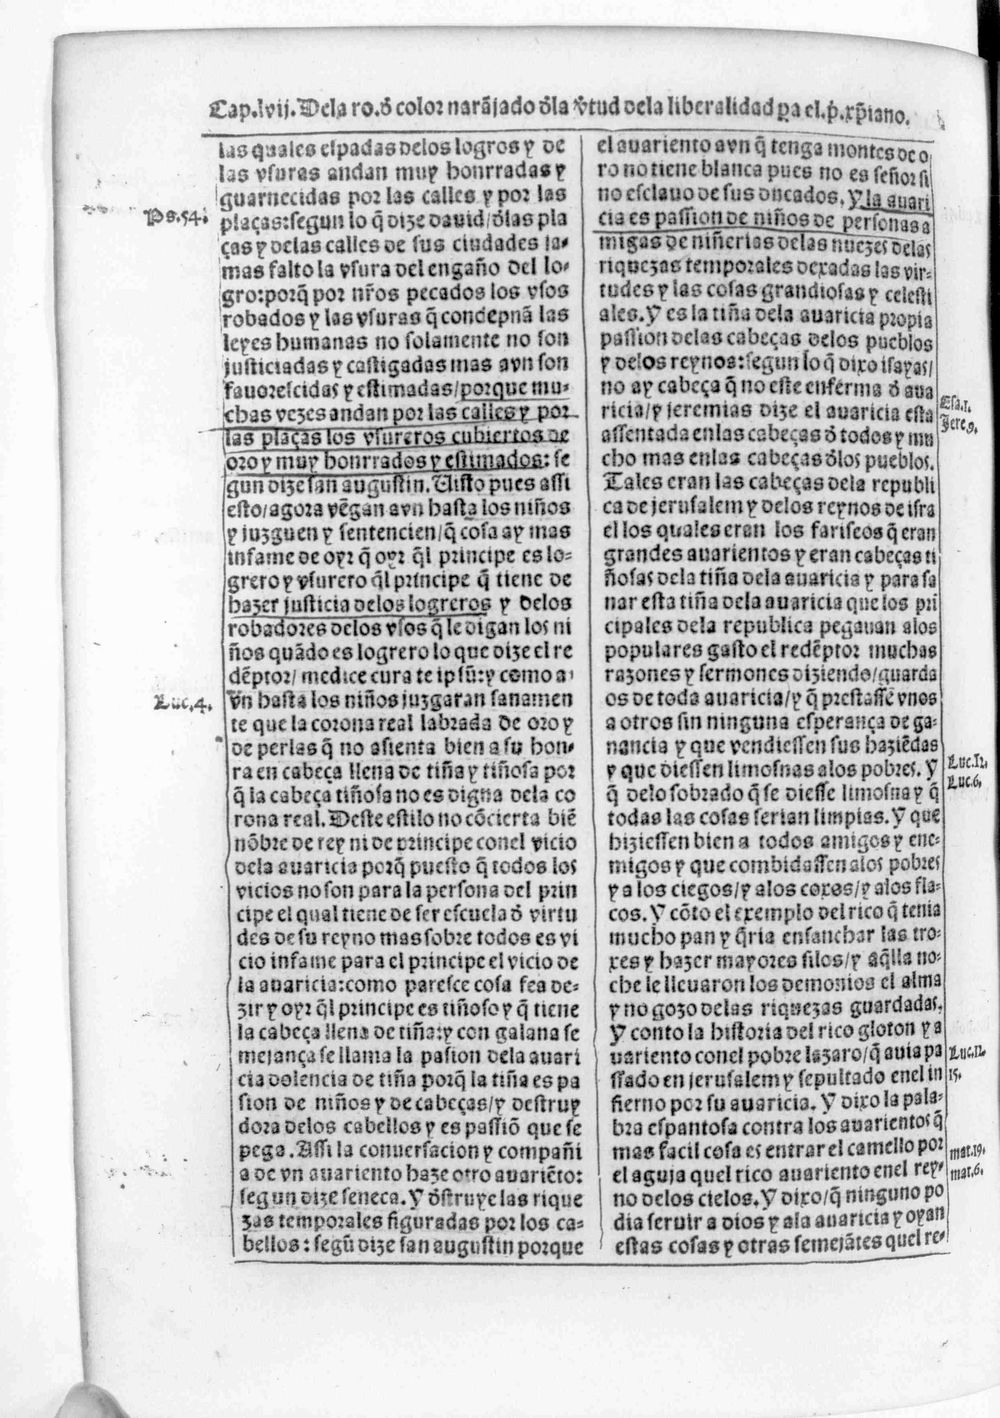 Cap.lvij. Dela ro. d̄ color narājado d̄la v̄tud dela liberalidad p̱a el.p̄.xp̄iano.
las quales espadas delos logros y de
las vsuras andan muy honrradas y
guarnecidas por las calles y por las
Ps.54.
plaças:segun lo q̄ dize dauid/d̄las pla
ças y delas calles de sus ciudades ja-
mas falto la vsura del engaño del lo-
gro:porq̄ por nr̄os pecados los vsos
robados y las vsuras q̄ condepnā las
leyes humanas no solamente no son
justiciadas y castigadas mas avn son
fauorescidas y estimadas/porque mu-
chas vezes andan por las calles y por
las plaças los vsureros cubiertos de
oro y muy honrrados y estimados: se
gun dize san augustin. Uisto pues assi
esto/agora vēgan avn hasta los niños
y juzguen y sentencien/q̄ cosa ay mas
infame de oyr q̄ oyr q̄l principe es lo-
grero y vsurero q̄l principe q̄ tiene de
hazer justicia delos logreros y delos
robadores delos vsos q̄ le digan los ni
ños quādo es logrero lo que dize el re
dēptor/medice cura te ipsū:y como a
Luc.4.
vn hasta los niños juzgaran sanamen
te que la corona real labrada de oro y
de perlas q̄ no asienta bien a su hon-
ra en cabeça llena de tiña y tiñosa por
q̄ la cabeça tiñosa no es digna dela co
rona real. Deste estilo no cōcierta biē
nōbre de rey ni de principe conel vicio
dela auaricia porq̄ puesto q̄ todos los
vicios no son para la persona del prin
cipe el qual tiene de ser escuela d̄ virtu
des de su reyno mas sobre todos es vi
cio infame para el principe el vicio de
la auaricia:como paresce cosa fea de-
zir y oyr q̄l principe es tiñoso y q̄ tiene
la cabeça llena de tiña:y con galana se
mejança se llama la pasion dela auari
cia dolencia de tiña porq̄ la tiña es pa
sion de niños y de cabeças/y destruy
dora delos cabellos y es passiō que se
pega. Assi la conuersacion y compañi
a de vn auariento haze otro auariēto:
segun dize seneca. Y d̄struye las rique
zas temporales figuradas por los ca-
bellos: segū dize san augustin porque
el auariento avn q̄ tenga montes de o
ro no tiene blanca pues no es señor si
no esclauo de sus ducados. Y la auari
cia es passion de niños de personas a
migas de niñerias delas nuezes delas
riquezas temporales dexadas las vir-
tudes y las cosas grandiosas y celesti
ales. Y es la tiña dela auaricia propia
passion delas cabeças delos pueblos
y delos reynos:segun lo q̄ dixo isayas/
no ay cabeça q̄ no este enferma d̄ aua
Esa.1.
ricia/y jeremias dize el auaricia esta
Jere.9.
assentada enlas cabeças d̄ todos y mu
cho mas enlas cabeças d̄los pueblos.
Tales eran las cabeças dela republi
ca de jerusalem y delos reynos de isra
el los quales eran los fariseos q̄ eran
grandes auarientos y eran cabeças ti
ñosas dela tiña dela auaricia y para sa
nar esta tiña dela auaricia que los pri
cipales dela republica pegauan alos
populares gasto el redēptor muchas
razones y sermones diziendo/guarda
os de toda auaricia/y q̄ prestassē vnos
a otros sin ninguna esperança de ga-
nancia y que vendiessen sus haziēdas
Luc.12.
y que diessen limosnas alos pobres. Y
Luc.6.
q̄ delo sobrado q̄ se diesse limosna y q̄
todas las cosas serian limpias. Y que
hiziessen bien a todos amigos y ene-
migos y que combidassen alos pobres
y a los ciegos/y alos coxos/y alos fla-
cos. Y cōto el exemplo del rico q̄ tenia
mucho pan y q̄ria ensanchar las tro-
xes y hazer mayores silos/y aq̄lla no-
che le lleuaron los demonios el alma
y no gozo delas riquezas guardadas.
Y conto la historia del rico gloton y a
uariento conel pobre lazaro/q̄ auia pa
Luc.12.
ssado en jerusalem y sepultado enel in
15.
fierno por su auaricia. Y dixo la pala-
bra espantosa contra los auarientos q̄
mas facil cosa es entrar el camello por
mat.19.
el aguja quel rico auariento enel rey-
mat.6.
no delos cielos. Y dixo/q̄ ninguno po
dia seruir a dios y ala auaricia y oyan
estas cosas y otras semejātes quel re-